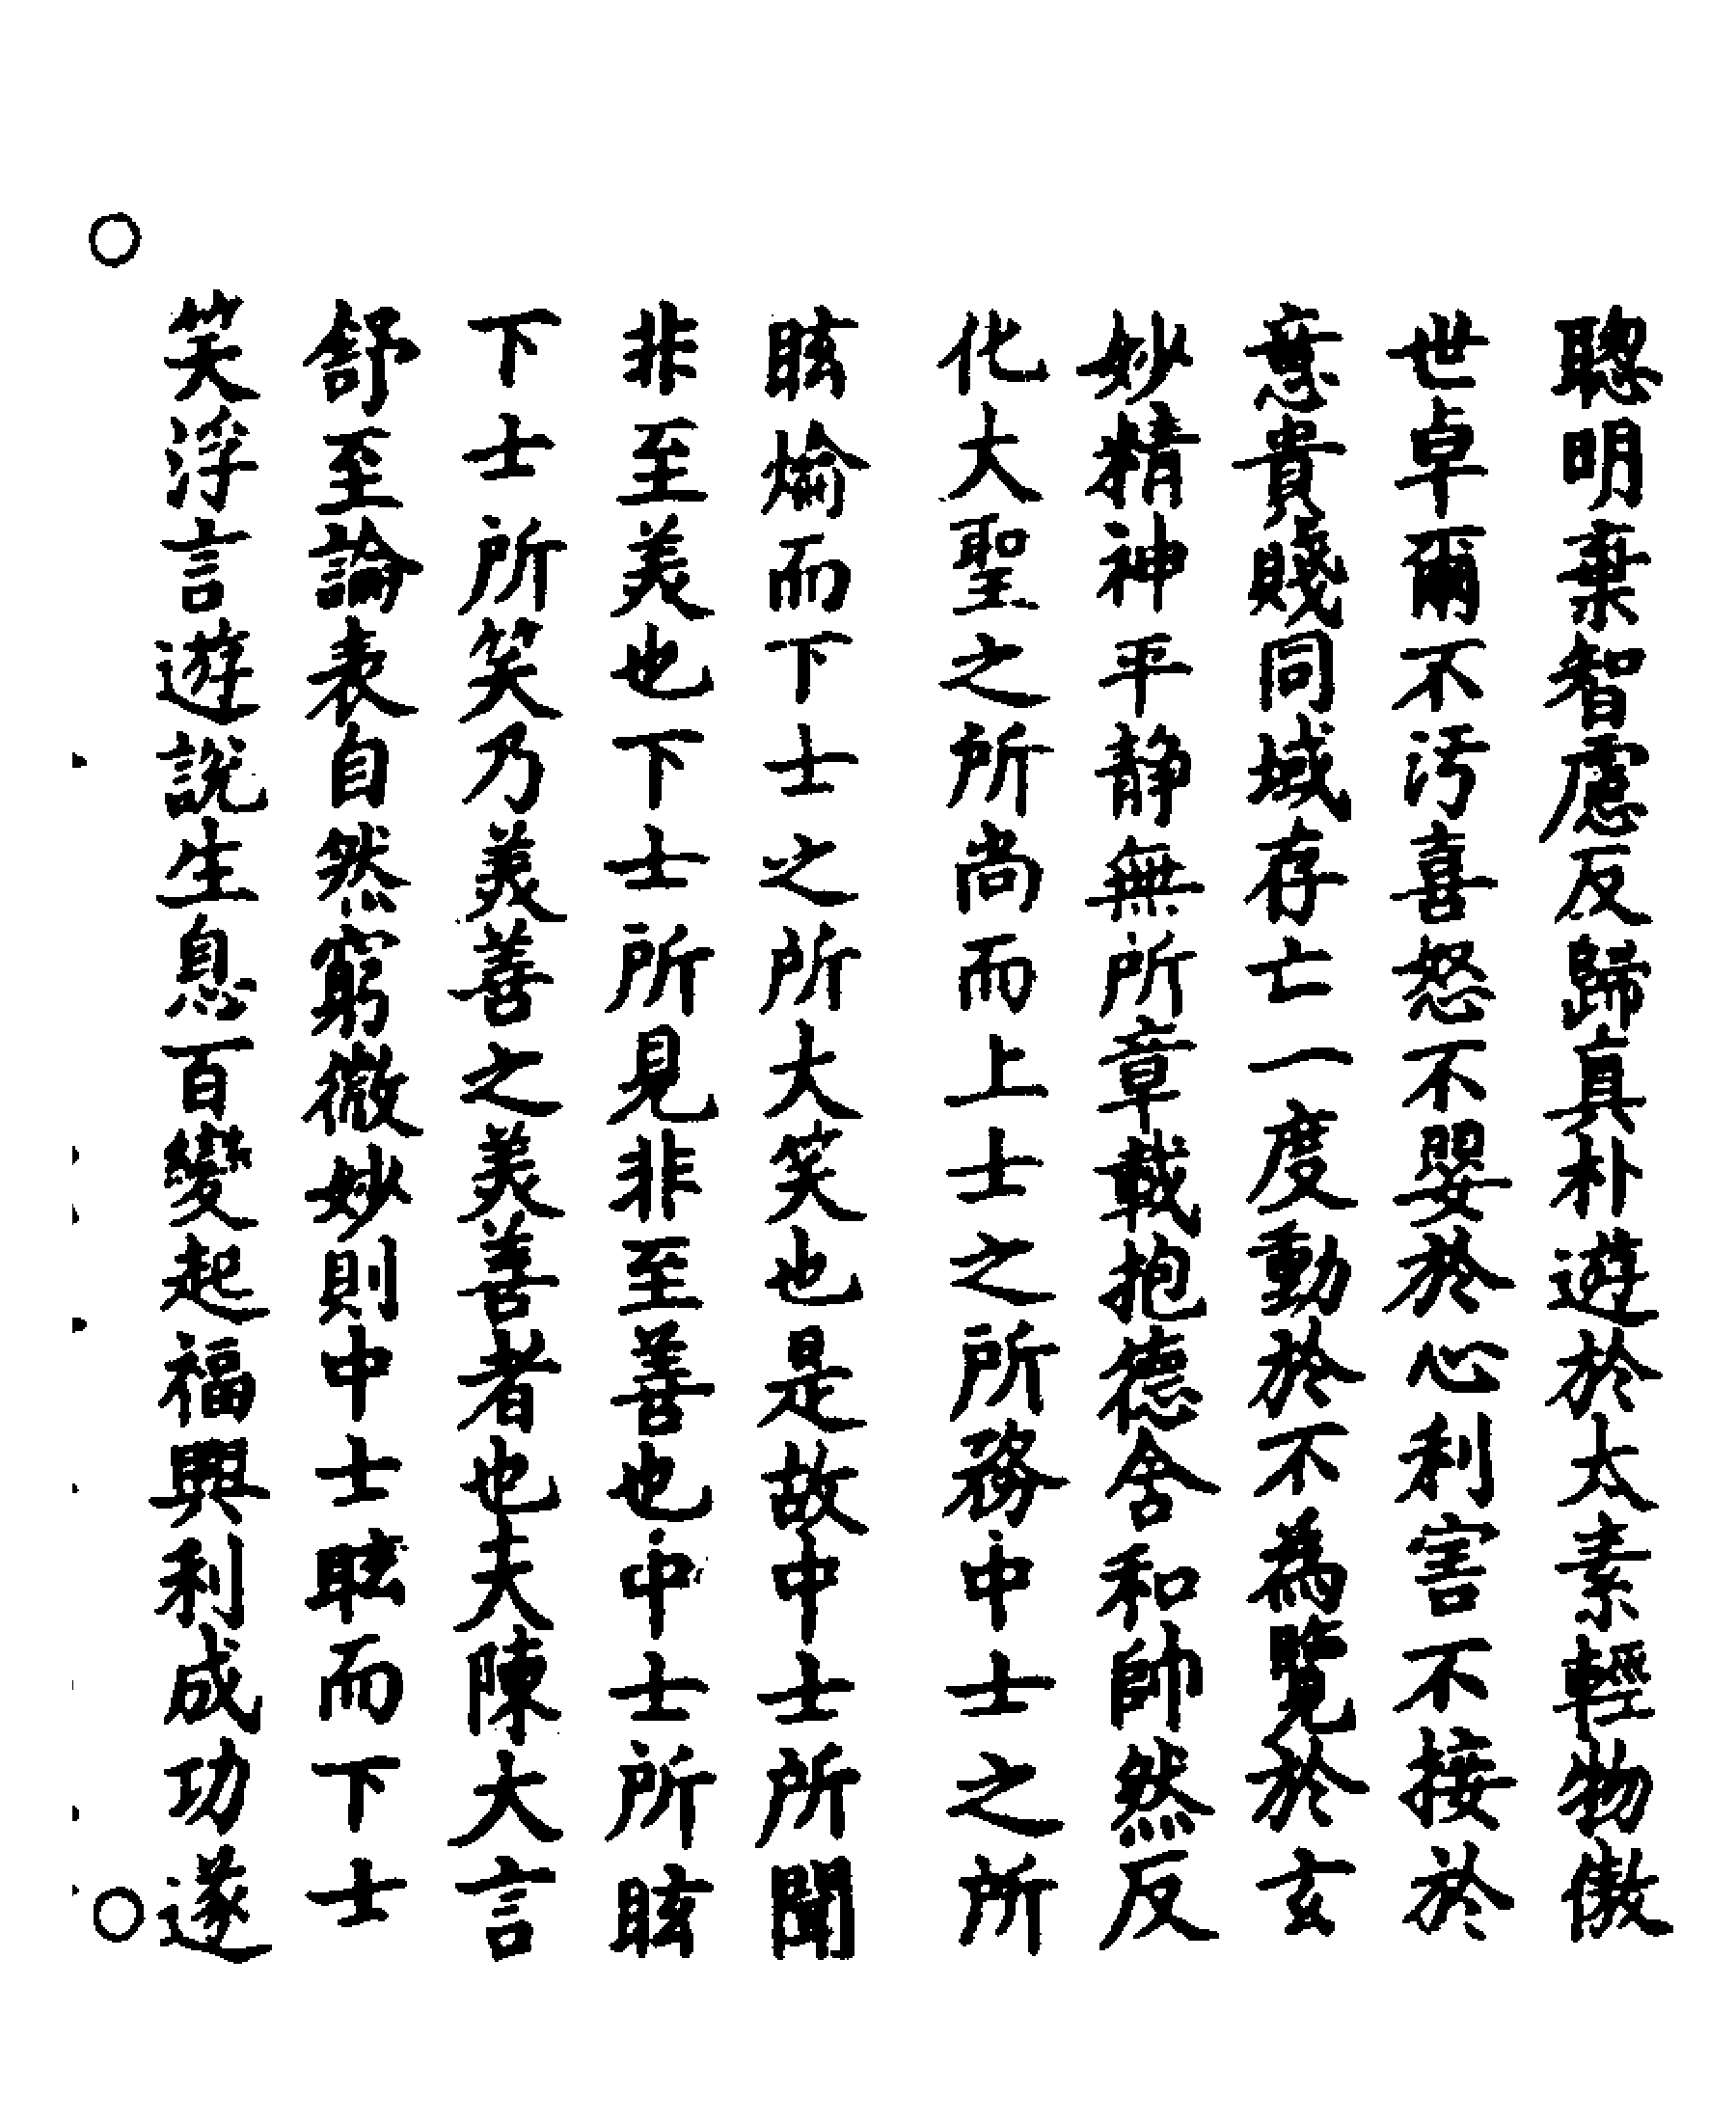 聦明棄智慮反歸真朴遊於太素輕物傲
世卓爾不汚喜怒不嬰於心利害不接於
意貴賤同域存亡一度動於不為覽於玄
妙精神平静無所章載抱德舍和帥然反
化大聖之所尚而上士之所務中士之所
眩爚而下士之所大笑也是故中士所聞
非至美也下士所見非至善也中士所眩
下士所笑乃美善之美善者也夫陳大言
舒至論表自然窮微妙則中士眩而下士
笑浮言遊說生息百變起福興利成功遂